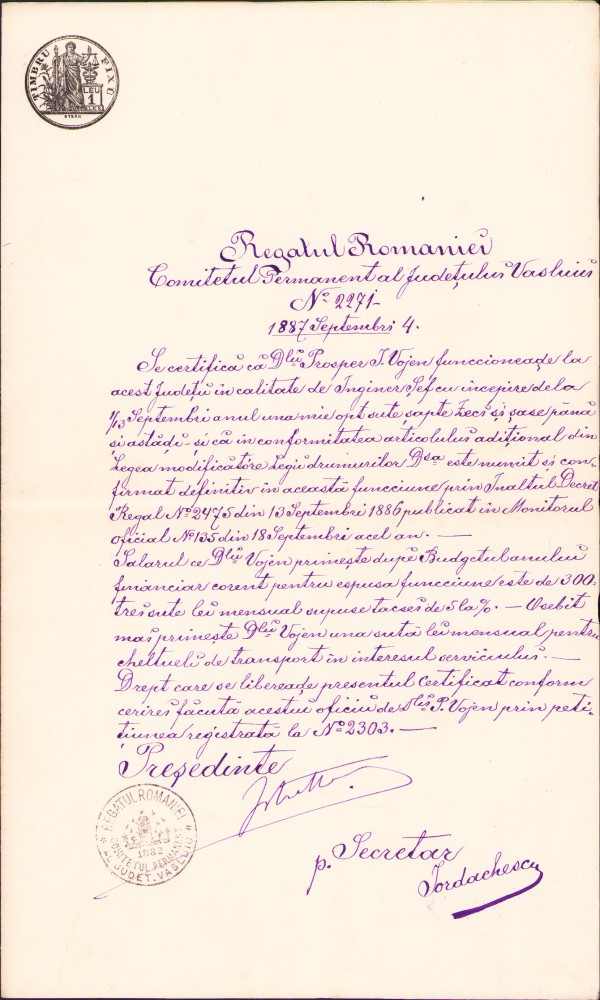 TIMBRU FIX
LEU
1
STERN
Regatul Romaniei
Comitetul Permanent al Județuluĭ Vasluiŭ
Nº 2271
1887 Septembri 4.
Se certifică că Dlŭ Prosper J. Vojen funccioneaḑe la
acest Județŭ in calitate de Inginer Șef cu incepire de la
1/13 Septembri anul una mie opt sute șapte zeci și șase până
și astăḑĭ și că in conformitatea articoluluĭ adițional din
Legea modificătore Legiĭ drumurilor Dsa este numit si con-
firmat definitiv in această funcciune prin Inaltul Decret
Regal Nº 2475 din 13 Septembri 1886 publicat in Monitorul
oficial Nº 135 din 18 Septembri acel an. —
Salarul ce Dlŭ Vojen primește dupĕ Budgetul anuluĭ
financiar corent pentru espusa funcciune este de 300
treĭ sute leĭ mensual supuse tacseĭ de 5 la %. — Osebit
maĭ primește Dlŭ Vojen una sută leĭ mensual pentru
cheltuelĭ de transport in interesul serviciuluĭ. —
Drept care se libereaḑe presentul Certificat conform
cerireĭ făcută acestuĭ oficiu de Dlŭ P. Vojen prin peti-
țiunea registrată la Nº 2303. —
Președinte
REGATUL ROMANIEI
COMITETUL PERMANENT
AL JUDET. VASLUIU
p. Secretar
Iordachescu